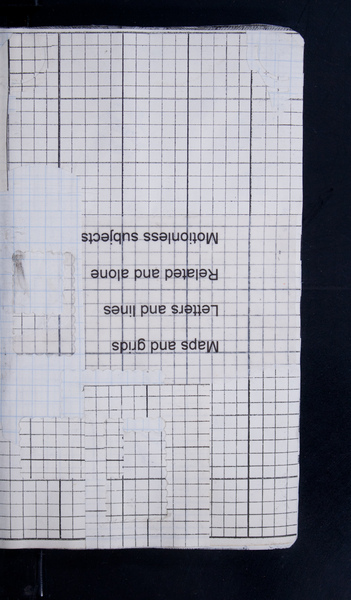 Maps and grids
Letters and lines
Related and alone
Motionless subjects